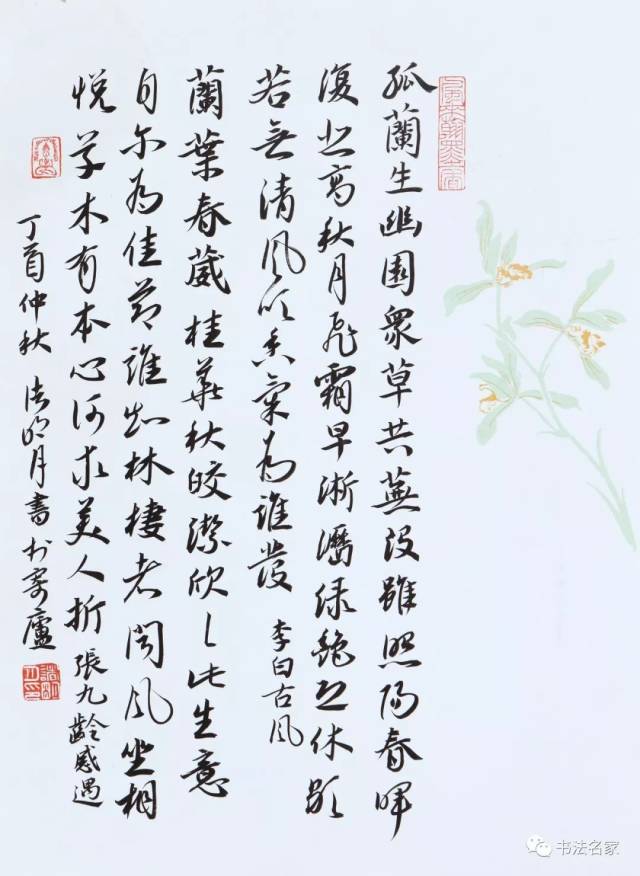 孤蘭生幽園衆草共蕪没雖照陽春暉
復悲高秋月飛霜早淅瀝绿艷恐休歇
若無清風吹香氣為誰發 李白古風
蘭葉春葳桂華秋皎潔欣〻此生意
自尔為佳節誰知林棲者聞風坐相
悅草木有本心何求美人折 張九齡感遇
丁酉仲秋 明月書於寄廬
书法名家